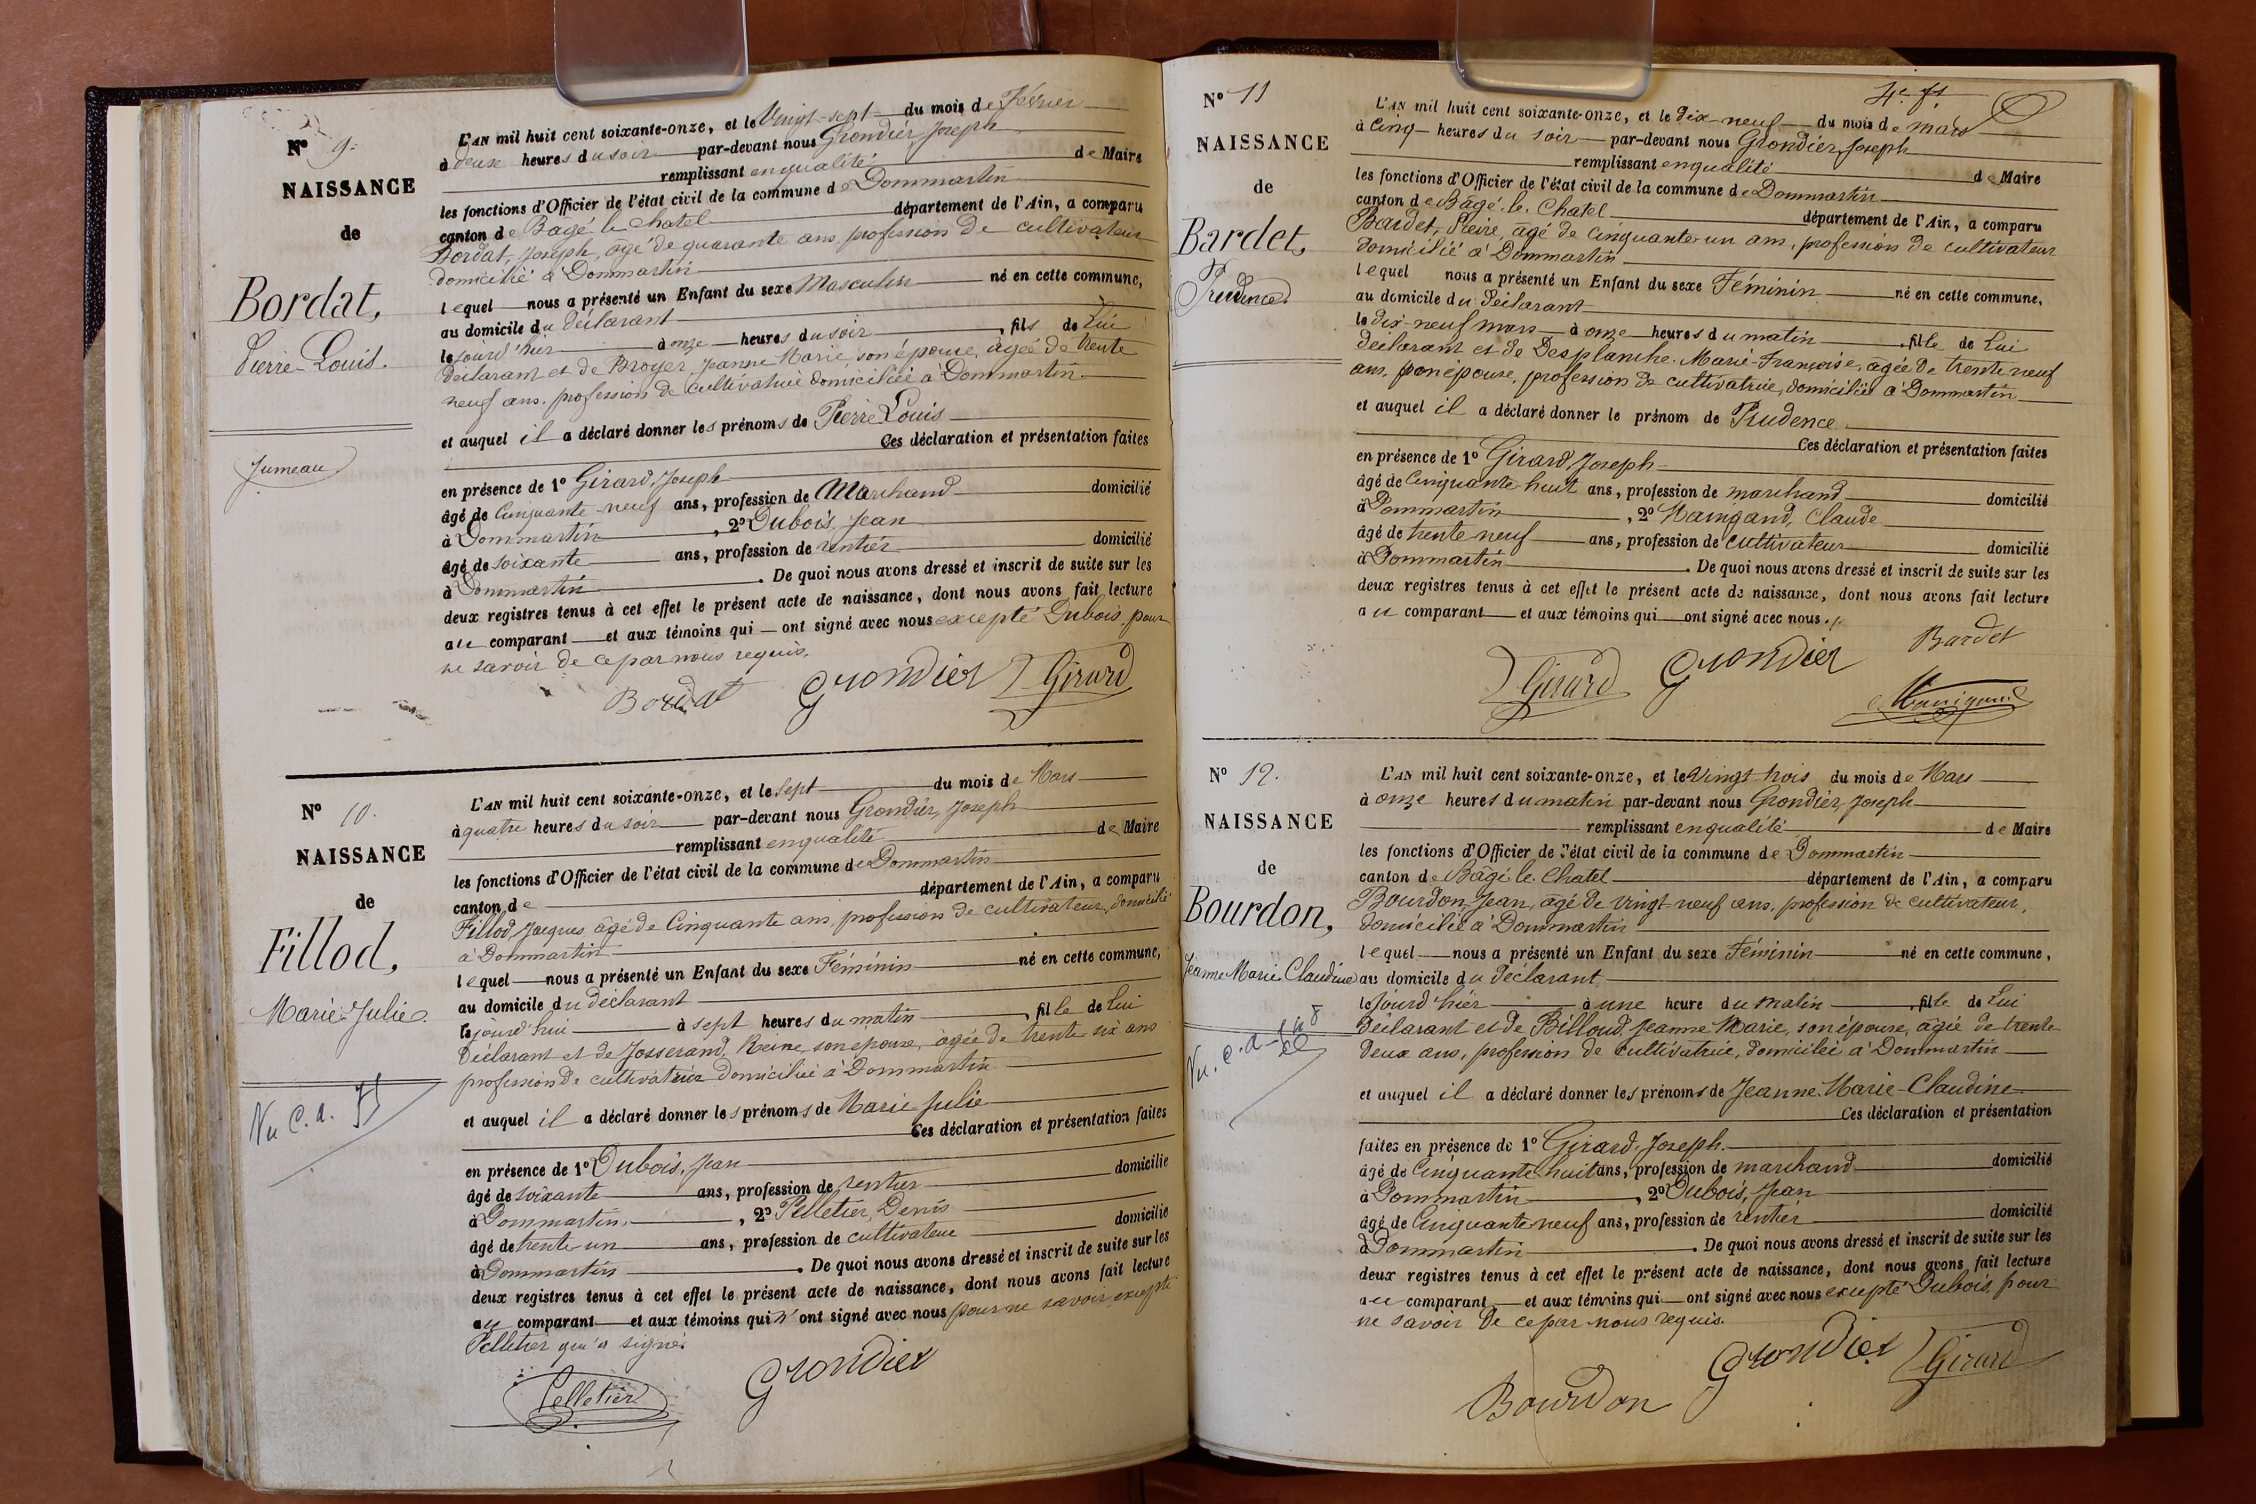 Nº 9.
NAISSANCE
de
Bordat,
Pierre Louis.
Jumeau
L'AN mil huit cent soixante-onze, et le Vingt-sept du mois de Février
à deux heures du soir par-devant nous Grondier, Joseph
remplissant en qualité de Maire
les fonctions d'Officier de l'état civil de la commune de Dommartin
canton de Bagé le Chatel département de l'Ain, a comparu
Bordat, Joseph, agé de quarante ans, profession de cultivateur
domicilié à Dommartin
lequel nous a présenté un Enfant du sexe Masculin né en cette commune,
au domicile du déclarant
le jourd'hier à onze heures du soir, fils de Lui
déclarant et de Broyer, Jeanne Marie son épouse, agée de trente
neuf ans, profession de cultivatrice domiciliée à Dommartin
et auquel il a déclaré donner les prénoms de Pierre Louis
Ces déclaration et présentation faites
en présence de 1º Girard, Joseph
âgé de Cinquante-neuf ans, profession de Marchand domicilié
à Dommartin, 2º Dubois, Jean
âgé de soixante ans, profession de rentier domicilié
à Dommartin. De quoi nous avons dressé et inscrit de suite sur les
deux registres tenus à cet effet le présent acte de naissance, dont nous avons fait lecture
au comparant et aux témoins qui ont signé avec nous excepté Dubois pour
ne savoir de ce par nous requis.
Bordat Grondier Girard
Nº 10.
NAISSANCE
de
Fillod,
Marie Julie.
Vu C. a.
L'AN mil huit cent soixante-onze, et le sept du mois de Mars
à quatre heures du soir par-devant nous Grondier, Joseph
remplissant en qualité de Maire
les fonctions d'Officier de l'état civil de la commune de Dommartin
canton de département de l'Ain, a comparu
Fillod, Jacques, âgé de Cinquante ans, profession de cultivateur, domicilié
à Dommartin
lequel nous a présenté un Enfant du sexe Féminin né en cette commune,
au domicile du déclarant
le jourd'hui à sept heures du matin, fille de Lui
déclarant et de Josserand, Reine, son épouse, âgée de trente six ans
profession de cultivatrice domiciliée à Dommartin
et auquel il a déclaré donner les prénoms de Marie Julie
Ces déclaration et présentation faites
en présence de 1º Dubois, Jean
âgé de soixante ans, profession de rentier domicilié
à Dommartin, 2º Pelletier, Denis
âgé de trente un ans, profession de cultivateur domicilié
à Dommartin. De quoi nous avons dressé et inscrit de suite sur les
deux registres tenus à cet effet le présent acte de naissance, dont nous avons fait lecture
au comparant et aux témoins qui n'ont signé avec nous pour ne savoir excepté
Pelletier qui a signé.
Pelletier Grondier
4e ft.
Nº 11
NAISSANCE
de
Bardet,
Prudence.
L'AN mil huit cent soixante-onze, et le Dix-neuf du mois de mars
à Cinq heures du soir par-devant nous Grondier, Joseph
remplissant en qualité de Maire
les fonctions d'Officier de l'état civil de la commune de Dommartin
canton de Bâgé le Chatel département de l'Ain, a comparu
Bardet, Pierre, agé de Cinquante un ans, profession de cultivateur
domicilié à Dommartin
lequel nous a présenté un Enfant du sexe Féminin né en cette commune,
au domicile du déclarant
le dix-neuf mars à onze heures du matin, fille de Lui
déclarant et de Desplanche, Marie Françoise, agée de trente neuf
ans, son épouse, profession de cultivatrice, domiciliée à Dommartin
et auquel il a déclaré donner le prénom de Prudence
Ces déclaration et présentation faites
en présence de 1º Girard, Joseph
âgé de Cinquante huit ans, profession de marchand domicilié
à Dommartin, 2º Mangand, Claude
âgé de trente neuf ans, profession de cultivateur domicilié
à Dommartin. De quoi nous avons dressé et inscrit de suite sur les
deux registres tenus à cet effet le présent acte de naissance, dont nous avons fait lecture
au comparant et aux témoins qui ont signé avec nous.
Bardet
Girard Grondier
Nº 12.
NAISSANCE
de
Bourdon,
Jeanne Marie Claudine
Vu. C. a.
L'AN mil huit cent soixante-onze, et le Vingt trois du mois de Mars
à onze heures du matin par-devant nous Grondier, Joseph
remplissant en qualité de Maire
les fonctions d'Officier de l'état civil de la commune de Dommartin
canton de Bâgé le Chatel département de l'Ain, a comparu
Bourdon, Jean, agé de vingt neuf ans, profession de cultivateur,
domicilié à Dommartin
lequel nous a présenté un Enfant du sexe Féminin né en cette commune,
au domicile du déclarant
le jourd'hier à une heure du matin, fille de Lui
déclarant et de Billoud, Jeanne Marie, son épouse, âgée de trente
deux ans, profession de cultivatrice, domiciliée à Dommartin
et auquel il a déclaré donner les prénoms de Jeanne Marie-Claudine
Ces déclaration et présentation
faites en présence de 1º Girard, Joseph.
âgé de Cinquante huit ans, profession de marchand domicilié
à Dommartin, 2º Dubois, Jean
âgé de Cinquante neuf ans, profession de rentier domicilié
à Dommartin. De quoi nous avons dressé et inscrit de suite sur les
deux registres tenus à cet effet le présent acte de naissance, dont nous avons fait lecture
au comparant et aux témoins qui ont signé avec nous excepté Dubois, pour
ne savoir de ce par nous requis.
Bourdon Grondier Girard